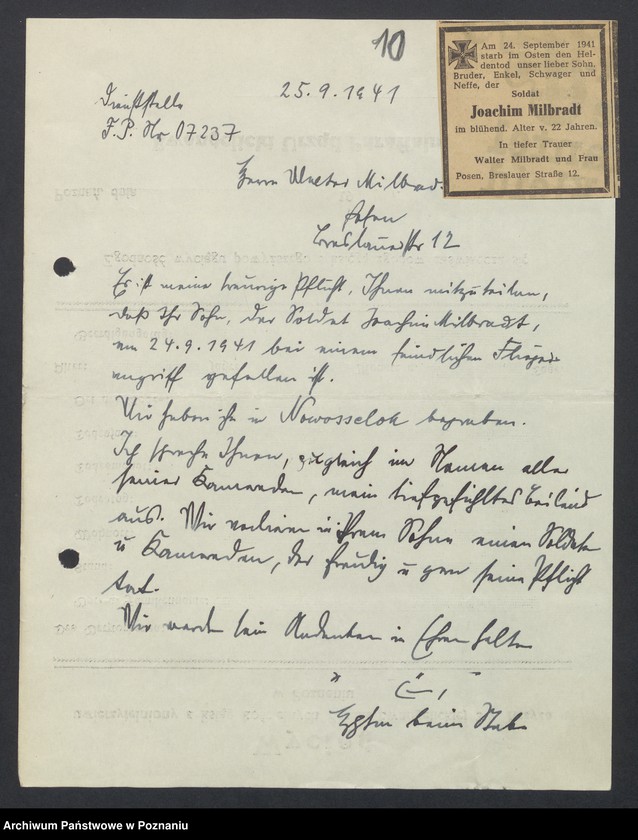 10
Am 24. September 1941
starb im Osten den Hel-
dentod unser lieber Sohn,
Bruder, Enkel, Schwager und
Neffe, der
Soldat
Joachim Milbradt
im blühend. Alter v. 22 Jahren.
In tiefer Trauer
Walter Milbradt und Frau
Posen, Breslauer Straße 12.
Dienststelle
F.P. Nr 07237
25.9.1941
Herrn Walter Milbrad
Posen
Breslauerstr 12
Es ist meine traurige Pflicht, Ihnen mitzuteilen,
daß Ihr Sohn, der Soldat Joachim Milbradt,
am 24.9.1941 bei einem feindlichen Flieger-
angriff gefallen ist.
Wir haben ihn in Nowosselok begraben.
Ich spreche Ihnen, zugleich im Namen aller
seiner Kameraden, mein tiefgefühltes Beileid
aus. Wir verlieren in Ihrem Sohne einen Soldaten
u Kameraden, der freudig u gern seine Pflicht
tat.
Wir werden sein Andenken in Ehren halten
Hptm beim Stabe
Archiwum Państwowe w Poznaniu